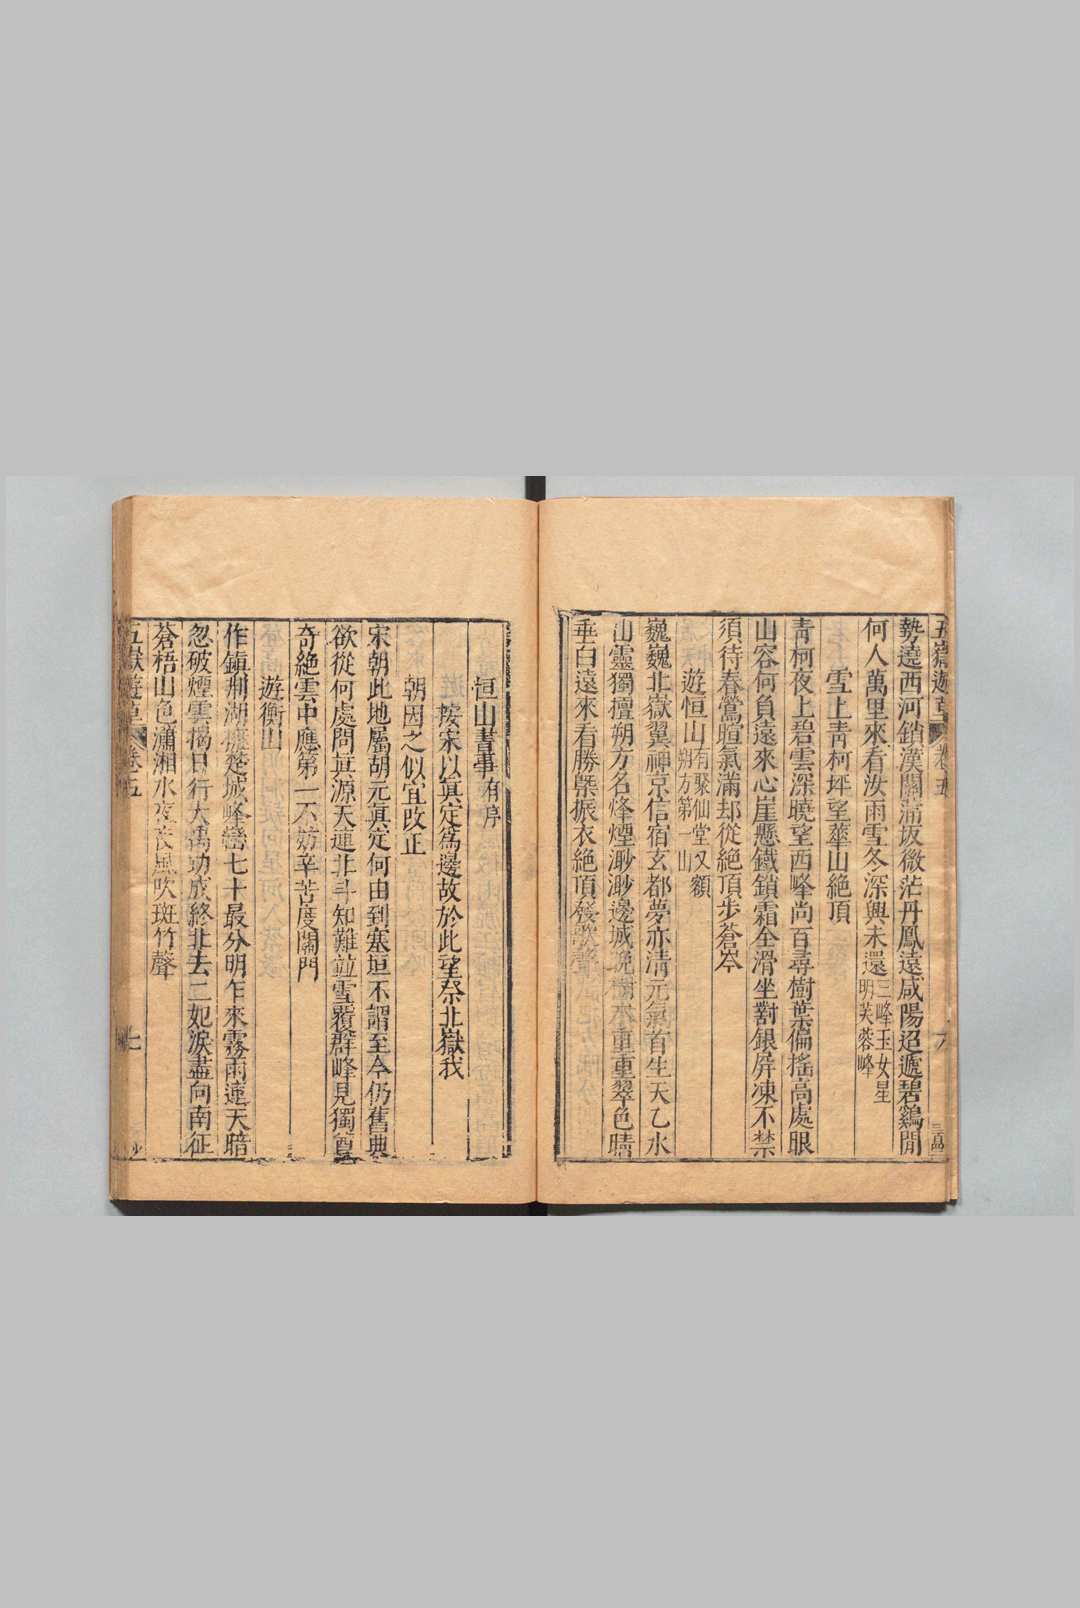 五嶽遊草 卷五 六
勢遶西河鎖漢關蒲坂微茫丹鳳遠咸陽迢遞碧鷄閒
何人萬里來看汝雨雪冬深興未還三峰玉女星
明芙蓉峰
雪上靑柯坪望華山絶頂
靑柯夜上碧雲深曉望西峰尚百尋樹葉偏搖高處眼
山容何負遠來心崖懸鐵鎖霜全滑坐對銀屏凍不禁
須待春鶯暄氣滿却從絶頂步蒼岑
遊恒山有聚仙堂又額
朔方第一山
巍巍北嶽翼神京信宿玄都夢亦淸元氣首生天乙水
山靈獨擅朔方名烽煙渺渺邊城晩樹木重重翠色晴
垂白遠來看勝槩振衣絶頂發歌聲
恒山書事有序
按宋以眞定爲邊故於此望祭北嶽我
朝因之似宜改正
宋朝此地屬胡元眞定何由到塞垣不謂至今仍舊典
欲從何處問眞源天連北斗知難並雪覆群峰見獨尊
奇絶雲中應第一不妨辛苦度關門
遊衡山
作鎭荆湖擁楚城峰巒七十最分明乍來霧雨連天暗
忽破煙雲揭日行大禹功成終北去二妃淚盡向南征
蒼梧山色瀟湘水夜夜風吹斑竹聲
五嶽遊草 卷五 七